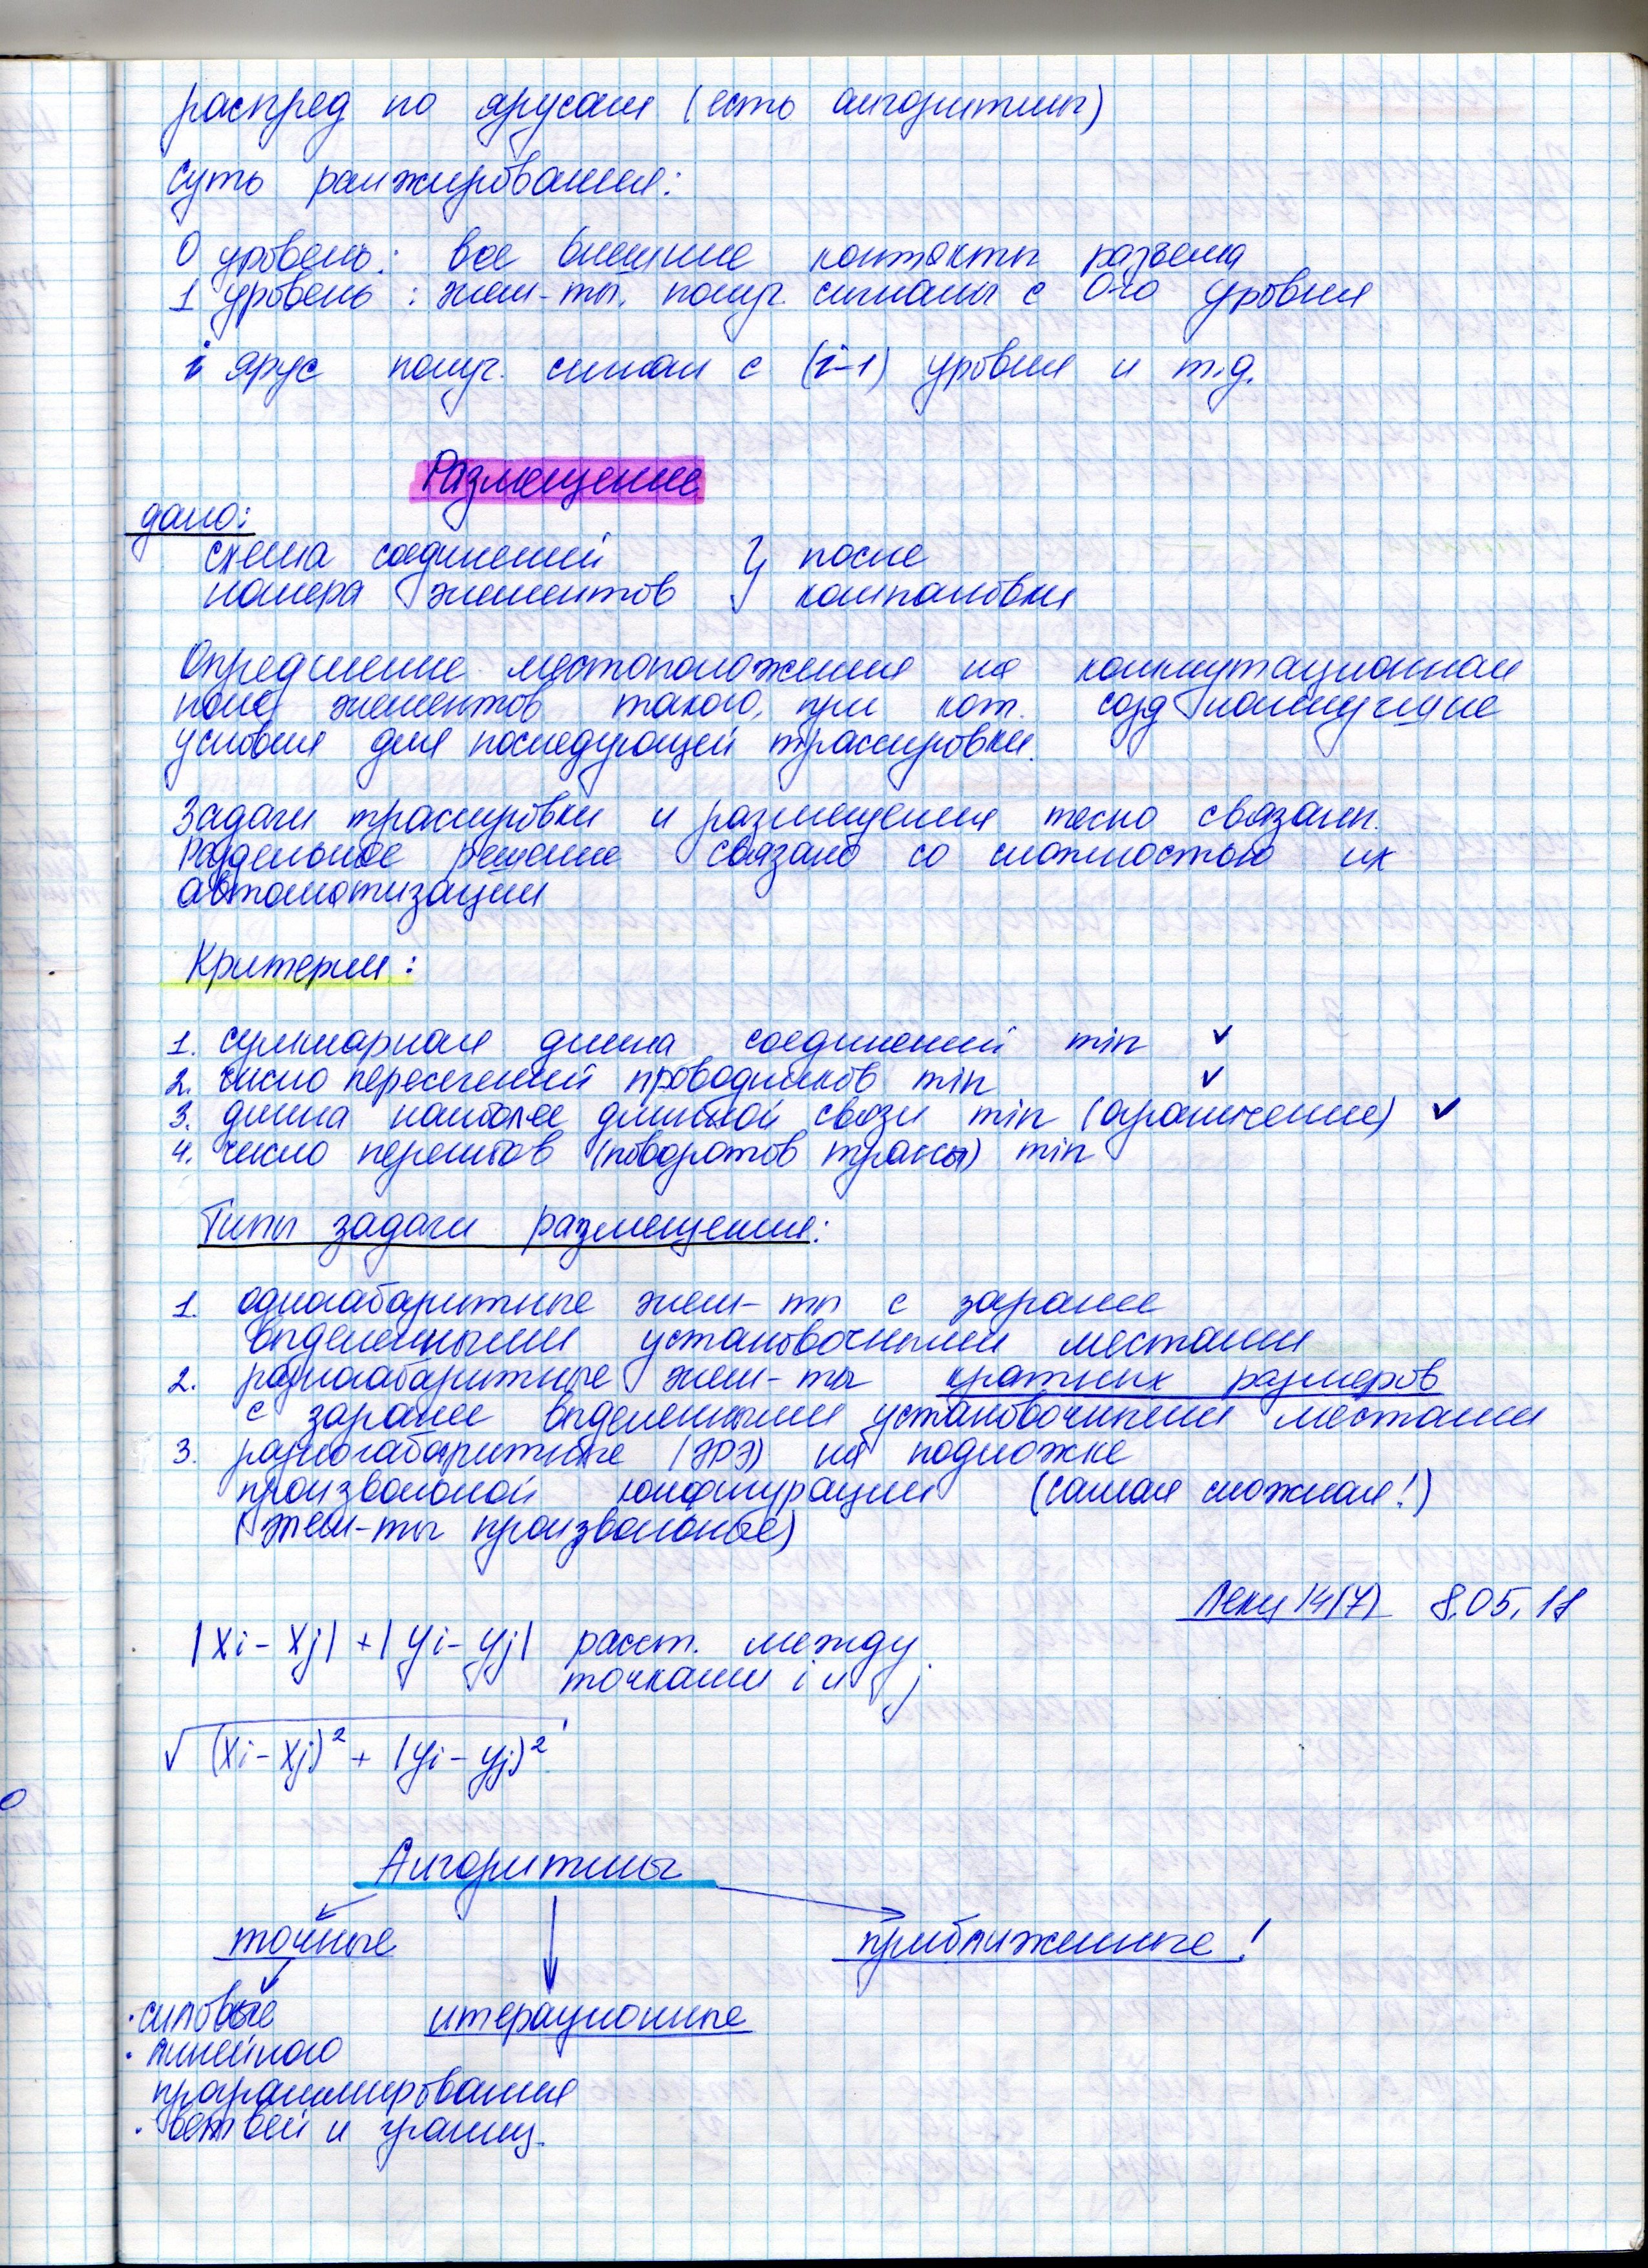 распред по ярусам (есть алгоритмы)
суть ранжирования:
0 уровень: все внешние контакты разъема
1 уровень: элем-ты, получ. сигналы с 0-го уровня
i ярус получ. сигнал с (i-1) уровня и т.д.
Размещение
дано:
схема соединений } после
номера элементов } компановки
Определение местоположения на коммутационном
поле элементов такого, при кот. созд наилучшие
условия для последующей трассировки.
Задачи трассировки и размещения тесно связаны.
Раздельное решение связано со сложностью их
автоматизации
Критерии:
1. суммарная длина соединений min ✓
2. число пересечений проводников min ✓
3. длина наиболее длинной связи min (ограничение) ✓
4. число перегибов (поворотов трассы) min
Типы задачи размещения:
1. одногабаритные элем-ты с заранее
выделенными установочными местами
2. разногабаритные элем-ты кратных размеров
с заранее выделенными установочными местами
3. разногабаритные (ЭРЭ) на подложке
произвольной конфигурации (самая сложная!)
(элем-ты произвольные)
Лекц 14(7) 8.05.18
|xi - xj| + |yi - yj| расст. между
точками i и j
√(xi - xj)² + (yi - yj)²
Алгоритмы
точные приближенные!
· силовые итерационные
· линейного
программирования
· ветвей и границ.